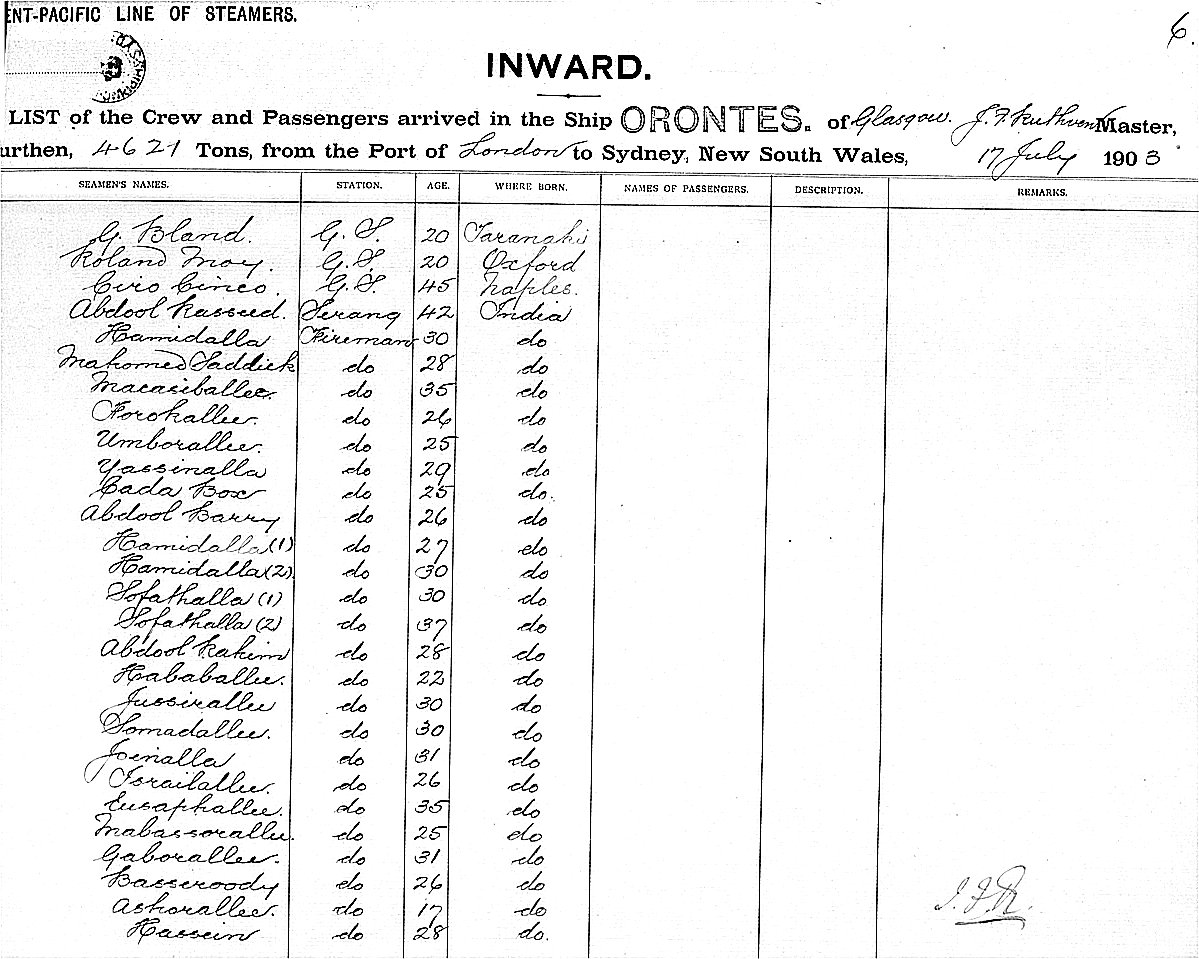 ENT-PACIFIC LINE OF STEAMERS.
6.
INWARD.
LIST of the Crew and Passengers arrived in the Ship ORONTES. of Glasgow. J. F. Ruthven Master,
urthen, 4621 Tons, from the Port of London to Sydney, New South Wales, 17 July 1903
SEAMEN'S NAMES. STATION. AGE. WHERE BORN. NAMES OF PASSENGERS. DESCRIPTION. REMARKS.
G. Bland. G. S. 20 Taranaki
Roland Moy. G. S. 20 Oxford
Ciro Cinco. G. S. 45 Naples.
Abdool Kasseed. Serang 42 India
Hamidalla Fireman 30 do
Mahomed Saddick do 28 do
Macasiballee. do 35 do
Forokallee. do 26 do
Umborallee. do 25 do
Yassinalla do 29 do
Cada Box do 25 do.
Abdool Barry do 26 do
Hamidalla (1) do 27 do
Hamidalla (2) do 30 do
Sofathalla (1) do 30 do
Sofathalla (2) do 37 do
Abdool Rahim do 28 do
Hababallee. do 22 do
Jussirallee do 30 do
Somadallee. do 30 do
Joinalla do 31 do
Israilallee. do 26 do
Eusaphallee. do 35 do
Mabassorallee. do 25 do
Gaborallee. do 31 do
Basseroody do 26 do
Ashorallee. do 17 do
Hassein do 28 do.
J. F. R.